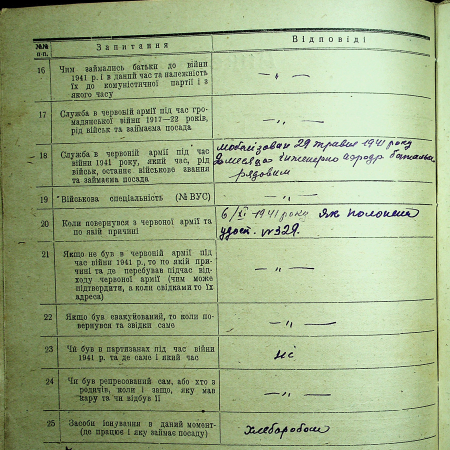 №№ п-п.
Запитання
Відповіді
16
Чим займались батьки до війни
1941 р. і в даний час та належність
їх до комуністичної партії і з
якого часу
— „ —
17
Служба в червоній армії під час гро-
мадянської війни 1917—22 років,
рід військ та займаєма посада
— „ —
18
Служба в червоній армії під час
війни 1941 року, який час, рід
військ, останнє військове звання
та займаєма посада
мобілізован 29 травня 1941 року
2 місяця інженерно аэродр
рядовим
19
Військова спеціальність (№ ВУС)
— „ —
20
Коли повернувся з червоної армії та
по якій причині
6/XI 1941 року як полонений
удост. №329.
21
Якщо не був в червоній армії під
час війни 1941 р., то по якій при-
чині та де перебував підчас від-
ходу червоної армії (чим може
підтвердити, а коли свідками то їх
адреса)
— „ —
22
Якщо був евакуйований, то коли по-
вернувся та звідки саме
— „ —
23
Чи був в партизанах під час війни
1941 р. та де саме і який час
ні
24
Чи був репресований сам, або хто з
родичів, коли і защо, яку мав
кару та чи відбув її
— „ —
25
Засоби існування в даний момент-
(де працює і яку займає посаду)
хлеборобом